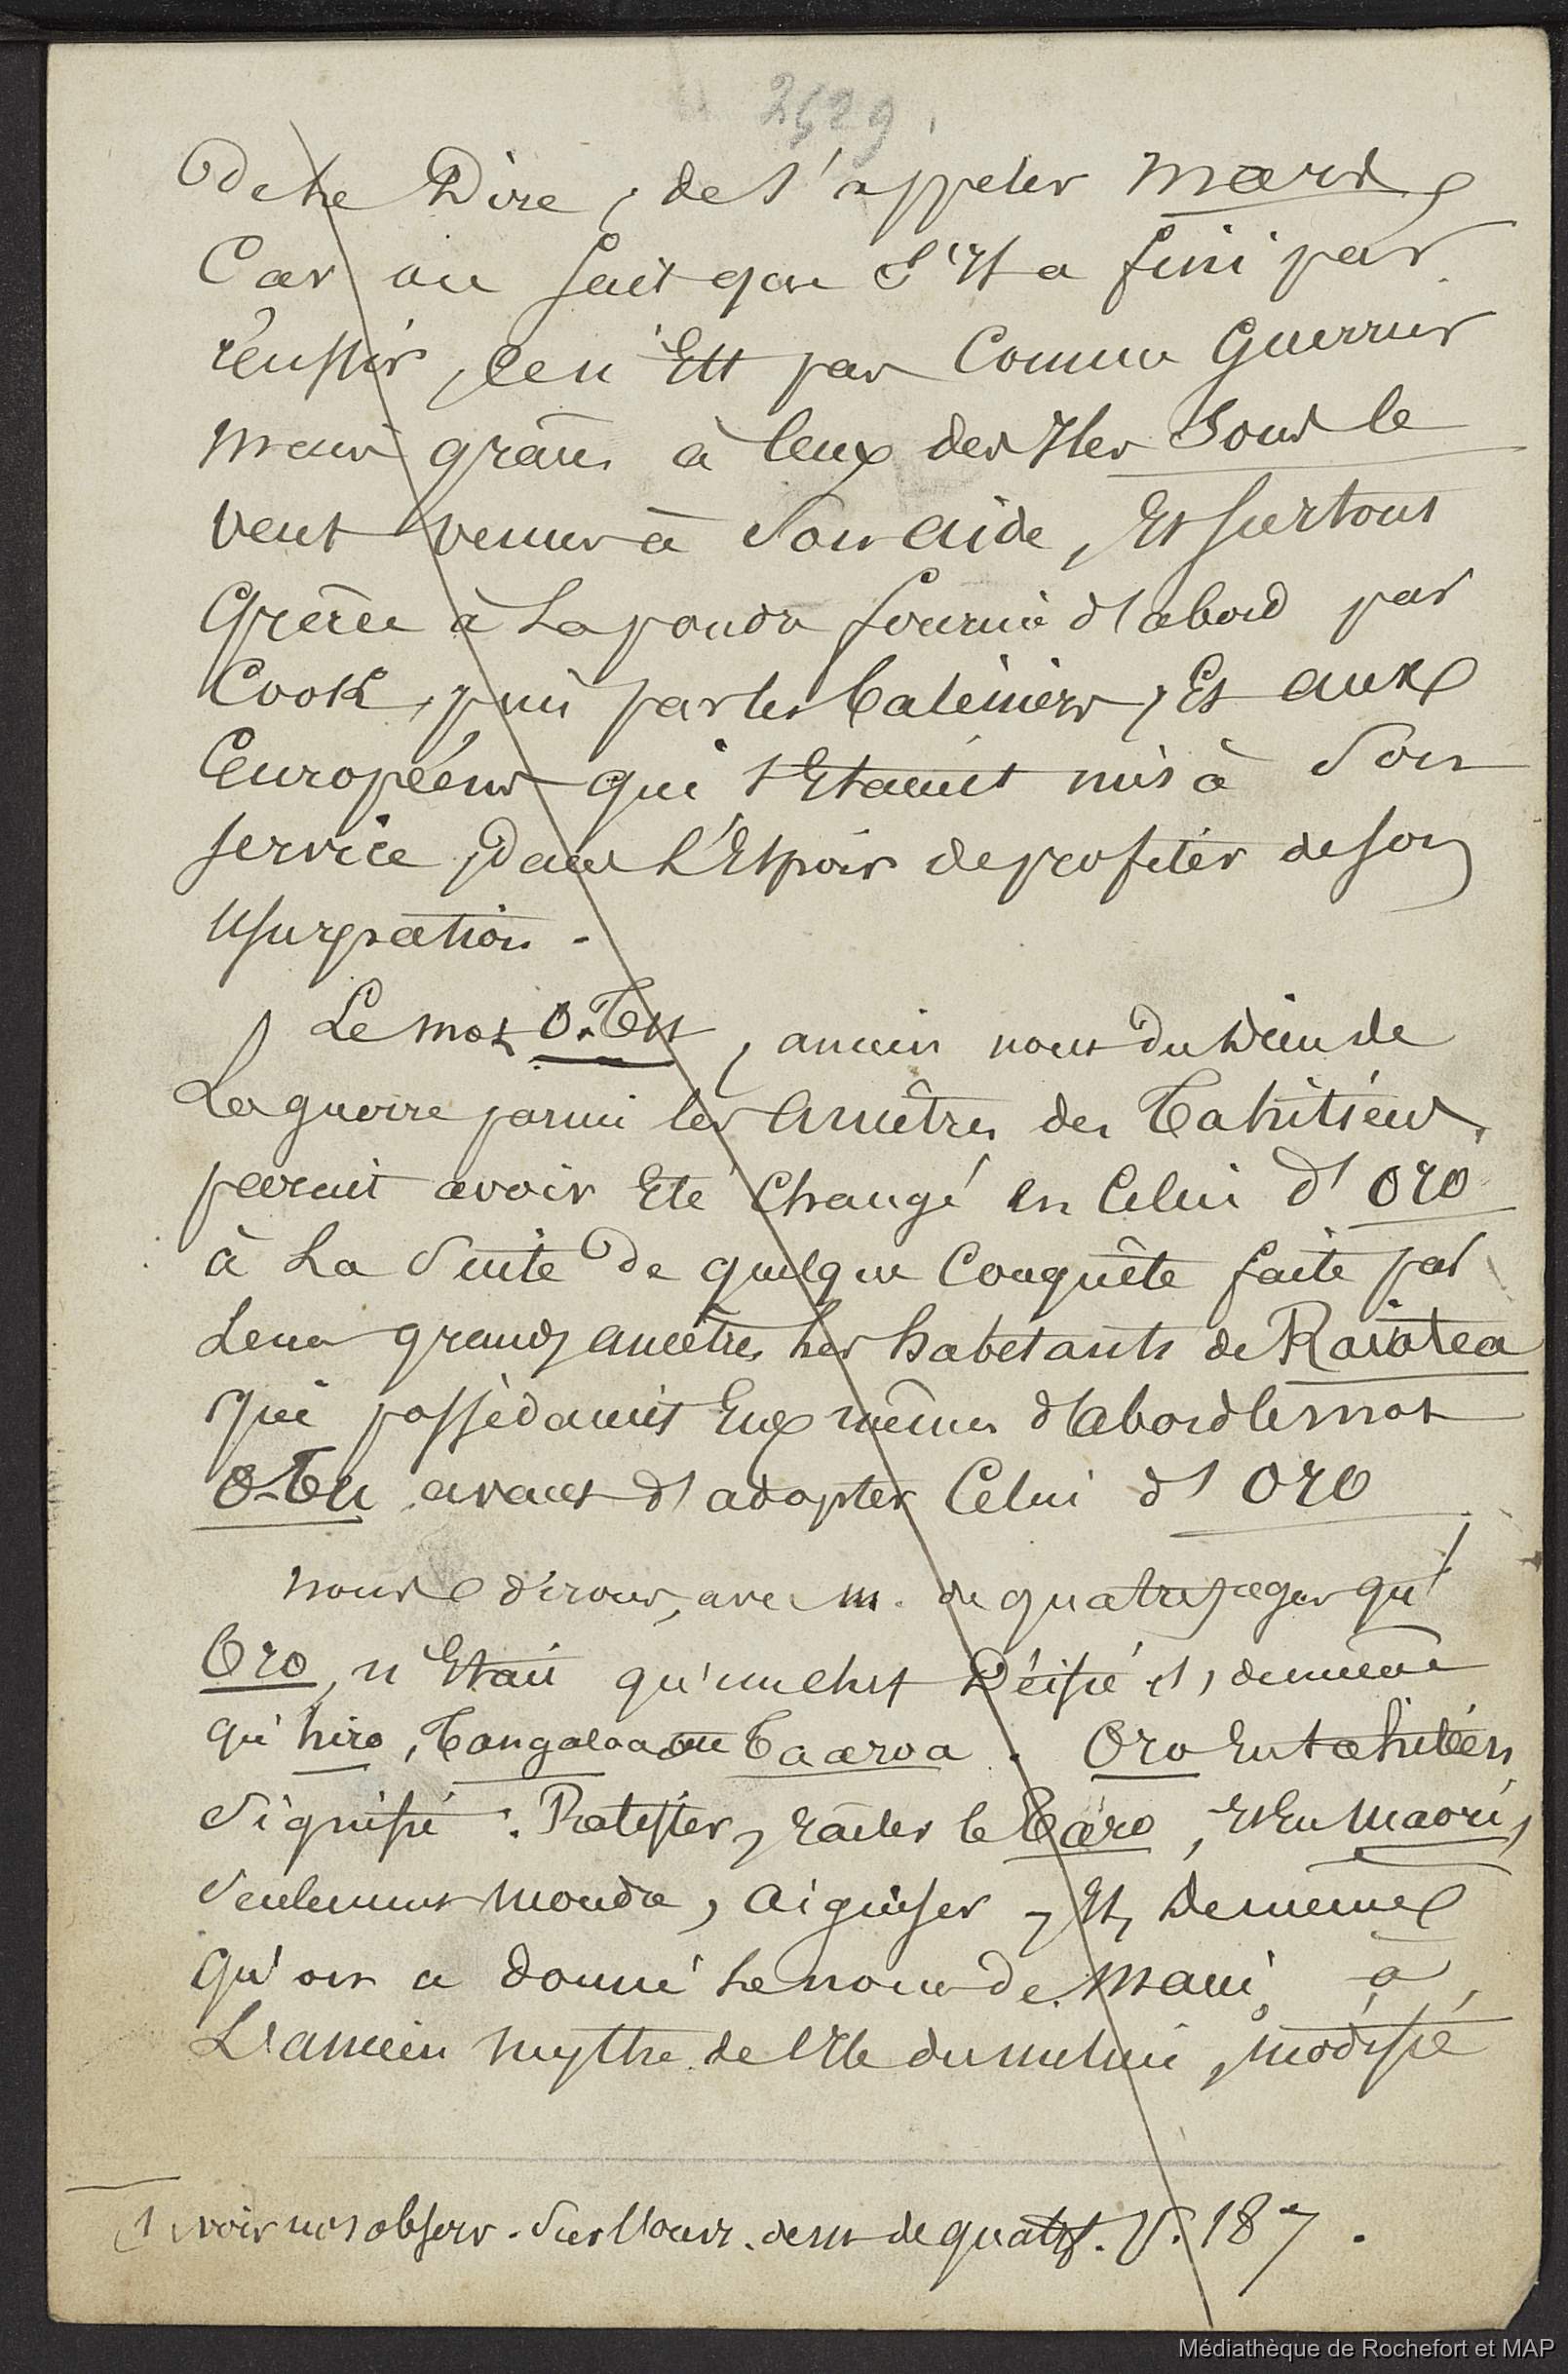 2629.
de le Dire, de s'appeler mars,
Car on sait que s'il a fini par
réussir, ce n'est pas comme guerrier
mais grâce à ceux des Iles Sous le
vent venus à son aide, et surtout
Grâce à la poudre fournie d'abord par
Cook, puis par les baleiniers, et aux
Européens qui s'étaient mis à son
service, dans l'Espoir de profiter de son
usurpation.
Le mot O-Tu, ancien nom du Dieu de
La guerre parmi les ancêtres des Tahitiens,
parait avoir été changé en celui d'Oro
à la suite de quelque conquête faite par
leurs grands ancêtres les habitants de Raiatea
qui possédaient Eux mêmes d'abord le mot
O-Tu avant d'adopter celui d'Oro
nous croirons, avec m. de quatrefages qu'
Oro, n'était qu'un chef Déifié (1) de même
qu'hiro, Tangaloa ou Taaroa. Oro en tahitien
signifie: Ratisser, râcler le Taro, et en Maori,
seulement moudre, aiguiser, et, de même
qu'on a donné le nom de Maui, à
L'ancien mythe de l'Ile du milieu, modifié
(1) voir nos observ. sur l'ouvr. de m. de quatref. p. 187.
Médiathèque de Rochefort et MAP